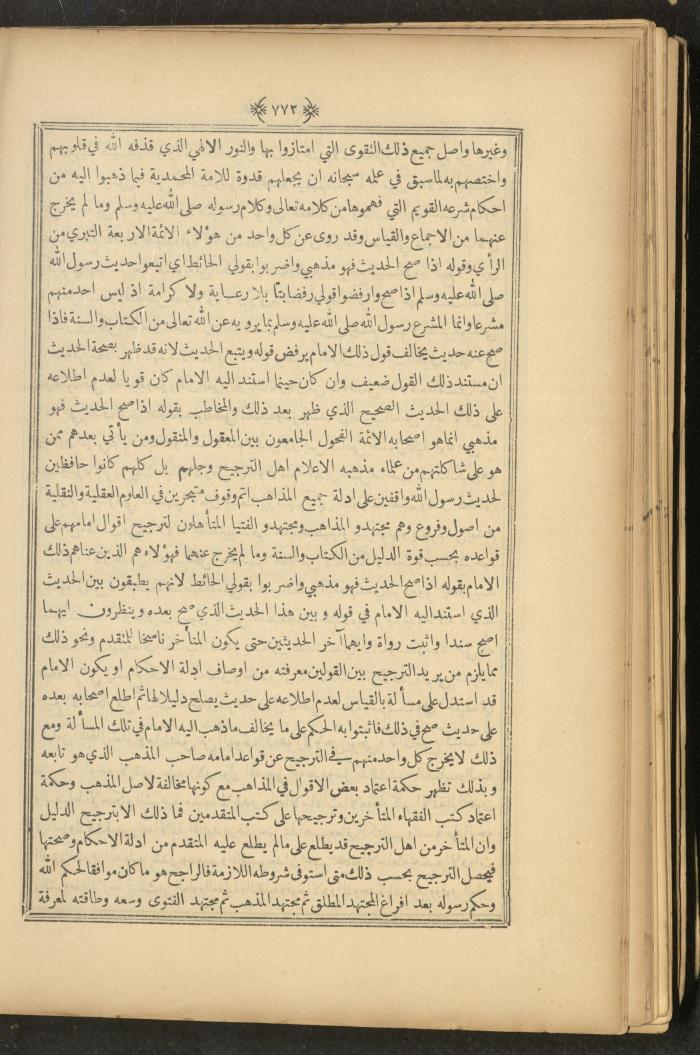 ٧٧٢
وغيرها واصل جميع ذلك التقوى التي امتازوا بها والنور الالهي الذي قذفه الله في قلوبهم
واختصهم به لما سبق في علمه سبحانه ان يجعلهم قدوة للامة المحمدية فيما ذهبوا اليه من
احكام شرعه القويم التي فهموها من كلامه تعالى وكلام رسوله صلى الله عليه وسلم وما لم يخرج
عنهما من الاجماع والقياس وقد روى عن كل واحد من هؤلاء الائمة الاربعة التبري من
الرأي وقوله اذا صح الحديث فهو مذهبي واضربوا بقولي الحائط اي اتبعوا حديث رسول الله
صلى الله عليه وسلم اذا صح وارفضوا قولي رفضا بتا بلا رعاية ولا كرامة اذ ليس احد منهم
مشرعا وانما المشرع رسول الله صلى الله عليه وسلم بما يرويه عن الله تعالى من الكتاب والسنة فاذا
صح عنه حديث يخالف قول ذلك الامام يرفض قوله ويتبع الحديث لانه قد ظهر بصحة الحديث
ان مستند ذلك القول ضعيف وان كان حينما استند اليه الامام كان قويا لعدم اطلاعه
على ذلك الحديث الصحيح الذي ظهر بعد ذلك والمخاطب بقوله اذا صح الحديث فهو
مذهبي انما هو اصحابه الائمة الفحول الجامعون بين المعقول والمنقول ومن يأتي بعدهم ممن
هو على شاكلتهم من علماء مذهبه الاعلام اهل الترجيح وجلهم بل كلهم كانوا حافظين
لحديث رسول الله واقفين على ادلة جميع المذاهب اتم وقوف متبحرين في العلوم العقلية والنقلية
من اصول وفروع وهم مجتهدو المذاهب ومجتهدو الفتيا المتأهلون لترجيح اقوال امامهم على
قواعده بحسب قوة الدليل من الكتاب والسنة وما لم يخرج عنهما فهؤلاء هم الذين عناهم ذلك
الامام بقوله اذا صح الحديث فهو مذهبي واضربوا بقولي الحائط لانهم يطبقون بين الحديث
الذي استند اليه الامام في قوله وبين هذا الحديث الذي صح بعده وينظرون ايهما
اصح سندا واثبت رواة وايهما آخر الحديثين حتى يكون المتأخر ناسخا للمتقدم ونحو ذلك
مما يلزم من يريد الترجيح بين القولين معرفته من اوصاف ادلة الاحكام او يكون الامام
قد استدل على مسألة بالقياس لعدم اطلاعه على حديث يصلح دليلا لها ثم اطلع اصحابه بعده
على حديث صح في ذلك فاثبتوا به الحكم على ما يخالف ما ذهب اليه الامام في تلك المسألة ومع
ذلك لا يخرج كل واحد منهم في الترجيح عن قواعد امامه صاحب المذهب الذي هو تابعه
وبذلك تظهر حكمة اعتماد بعض الاقوال في المذاهب مع كونها مخالفة لاصل المذهب وحكمة
اعتماد كتب الفقهاء المتأخرين وترجيحها على كتب المتقدمين فما ذلك الا بترجيح الدليل
وان المتأخر من اهل الترجيح قد يطلع على ما لم يطلع عليه المتقدم من ادلة الاحكام وصحتها
فيحصل الترجيح بحسب ذلك متى استوفى شروطه اللازمة فالراجح هو ما كان موافقا لحكم الله
وحكم رسوله بعد افراغ المجتهد المطلق ثم مجتهد المذهب ثم مجتهد الفتوى وسعه وطاقته لمعرفة